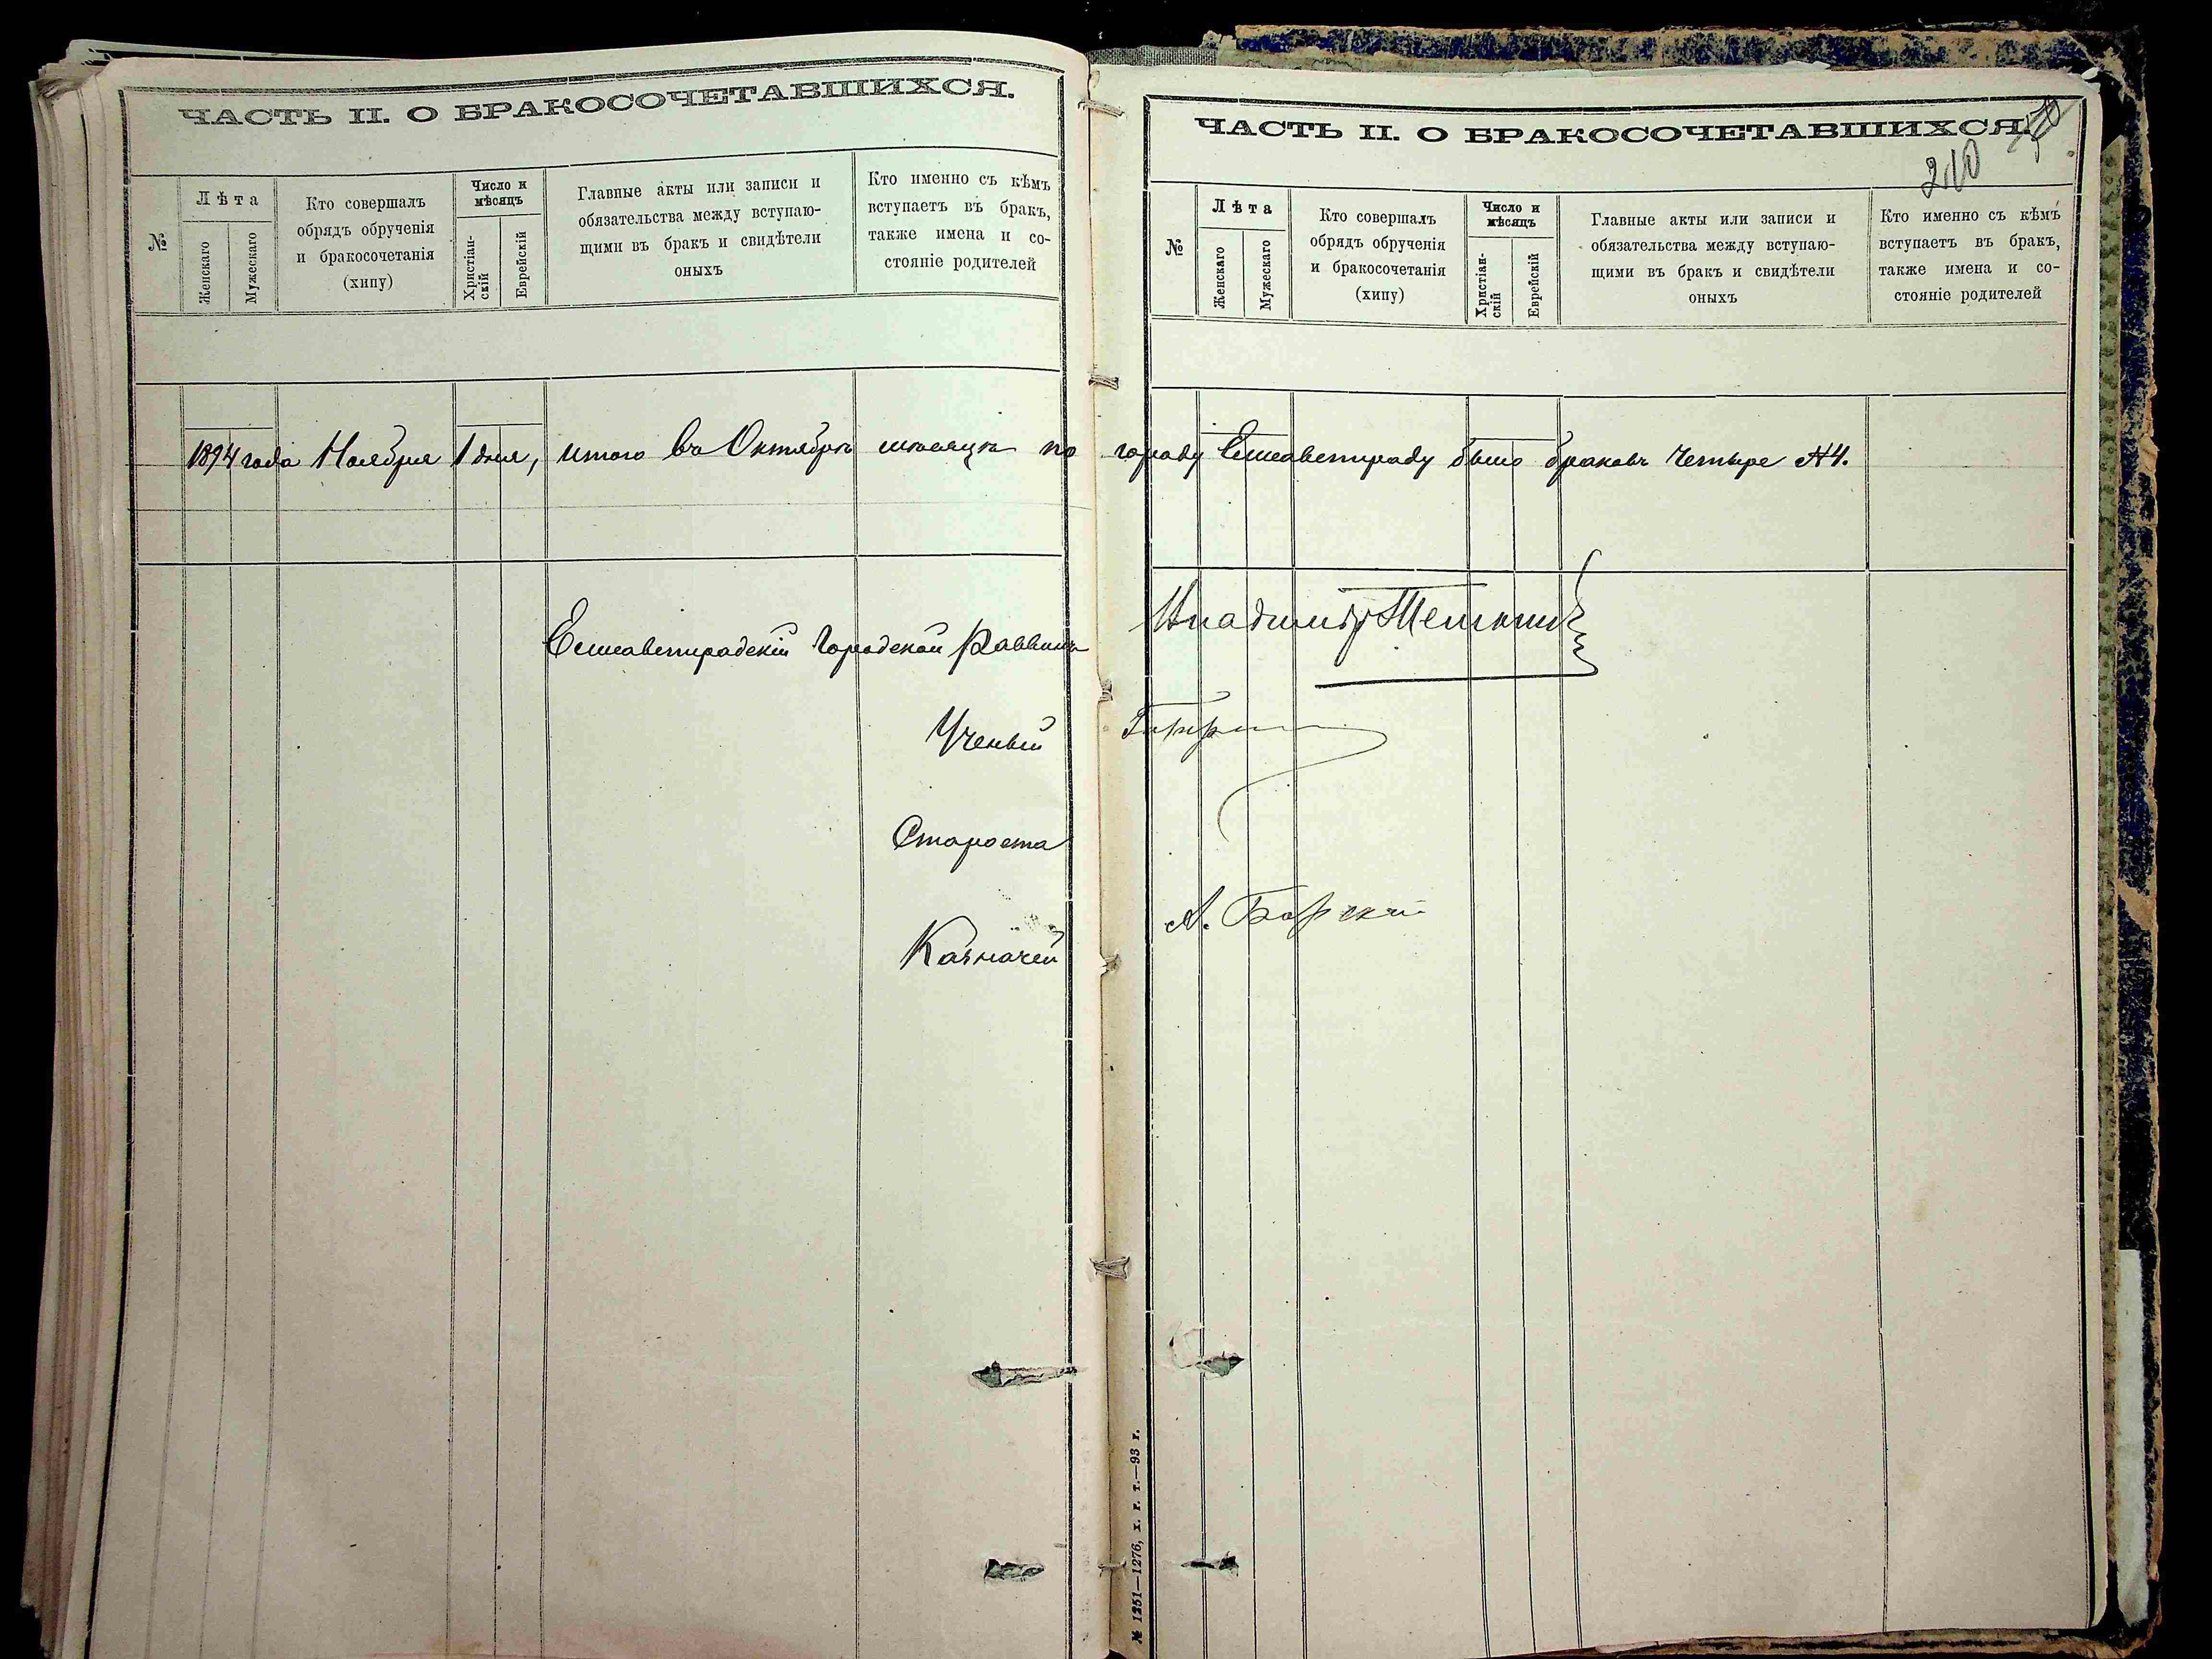 ЧАСТЬ II. О БРАКОСОЧЕТАВШИХСЯ.
№
Лѣта
Женскаго
Мужескаго
Кто совершалъ
обрядъ обрученія
и бракосочетанія
(хипу)
Число и
мѣсяцъ
Христіан-
скій
Еврейскій
Главные акты или записи и
обязательства между вступаю-
щими въ бракъ и свидѣтели
оныхъ
Кто именно съ кѣмъ
вступаетъ въ бракъ,
также имена и со-
стояніе родителей
1894 года Ноября 1 дня, итого въ Октябрѣ мѣсяцѣ по
Елисаветградскій Городской Раввинъ
Ученый
Староста
Казначей
ЧАСТЬ II. О БРАКОСОЧЕТАВШИХСЯ.
210
№
Лѣта
Женскаго
Мужескаго
Кто совершалъ
обрядъ обрученія
и бракосочетанія
(хипу)
Число и
мѣсяцъ
Христіан-
скій
Еврейскій
Главные акты или записи и
обязательства между вступаю-
щими въ бракъ и свидѣтели
оныхъ
Кто именно съ кѣмъ
вступаетъ въ бракъ,
также имена и со-
стояніе родителей
городу Елисаветграду было браковъ четыре №4.
Владиміръ Темкинъ
А. Борскій
№ 1251—1276, х. г. т.—93 г.